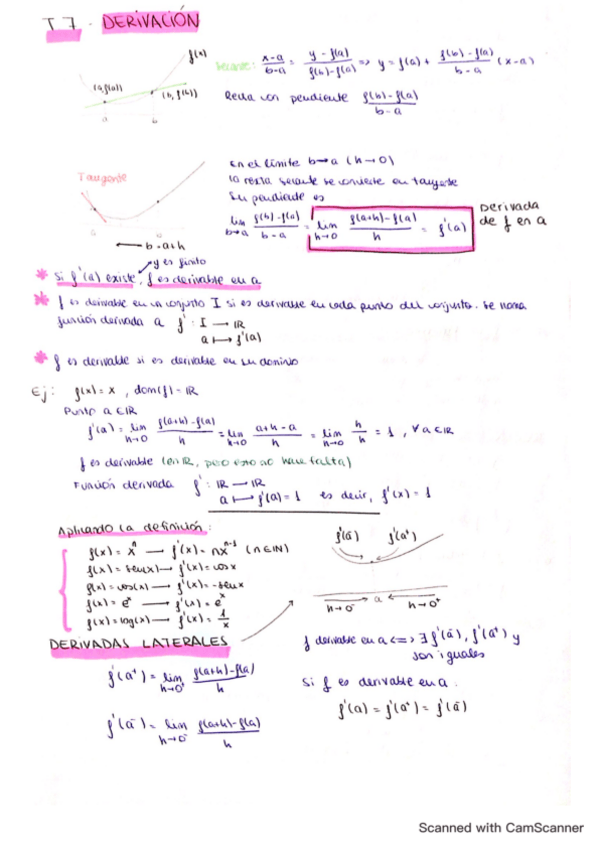 T 7. DERIVACIÓN
f(x)
(a, f(a))
(b, f(b))
a
b
secante: x-a / b-a = y - f(a) / f(b)-f(a) => y = f(a) + f(b)-f(a) / b-a (x-a)
Recta con pendiente f(b)-f(a) / b-a
Tangente
b = a+h
En el límite b→a (h→0)
la recta secante se convierte en tangente
Su pendiente es
lim b→a f(b)-f(a) / b-a = lim h→0 f(a+h)-f(a) / h = f'(a)
Derivada de f en a
y es finito
* Si f'(a) existe, f es derivable en a
* f es derivable en un conjunto I si es derivable en cada punto del conjunto. Se llama
función derivada a f': I → IR
a ↦ f'(a)
* f es derivable si es derivable en su dominio
Ej: f(x) = x, dom(f) = IR
Punto a ∈ IR
f'(a) = lim h→0 f(a+h)-f(a) / h = lim h→0 a+h-a / h = lim h→0 h / h = 1, ∀a ∈ IR
f es derivable (en IR, pero esto no hace falta)
Función derivada f': IR → IR
a ↦ f'(a) = 1 es decir, f'(x) = 1
Aplicando la definición:
f(x) = xⁿ → f'(x) = nxⁿ⁻¹ (n ∈ IN)
f(x) = sen(x) → f'(x) = cos x
f(x) = cos(x) → f'(x) = -sen x
f(x) = eˣ → f'(x) = eˣ
f(x) = log(x) → f'(x) = 1/x
f'(a⁻) f'(a⁺)
h→0⁻ a h→0⁺
DERIVADAS LATERALES
f'(a⁺) = lim h→0⁺ f(a+h)-f(a) / h
f'(a⁻) = lim h→0⁻ f(a+h)-f(a) / h
f derivable en a <=> ∃ f'(a⁻), f'(a⁺) y
son iguales
Si f es derivable en a:
f'(a) = f'(a⁺) = f'(a⁻)
Scanned with CamScanner